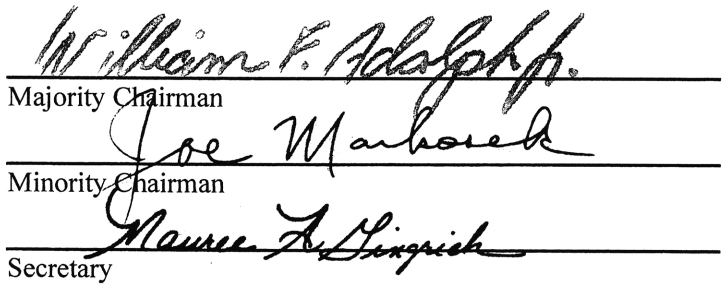 William F. Adolph Jr.
Majority Chairman
Joe Markosek
Minority Chairman
Mauree A. Gingrich
Secretary